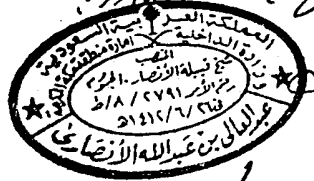 المملكة العربية السعودية
وزارة الداخلية
إمارة منطقة مكة المكرمة
المنصب
شيخ قبيلة الأنصار
رقم الأمر ٢٧٩١ / ٨ / ط
في ٢٦ / ٦ / ١٤١٢ هـ
عبد العالي بن عبد الله الأنصاري